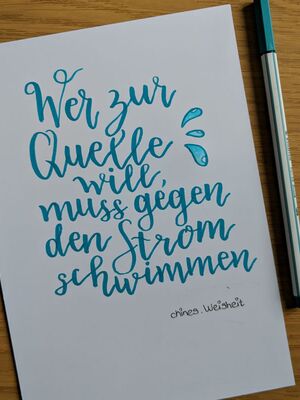 Wer zur
Quelle
will
muss gegen
den Strom
schwimmen
chines. Weisheit